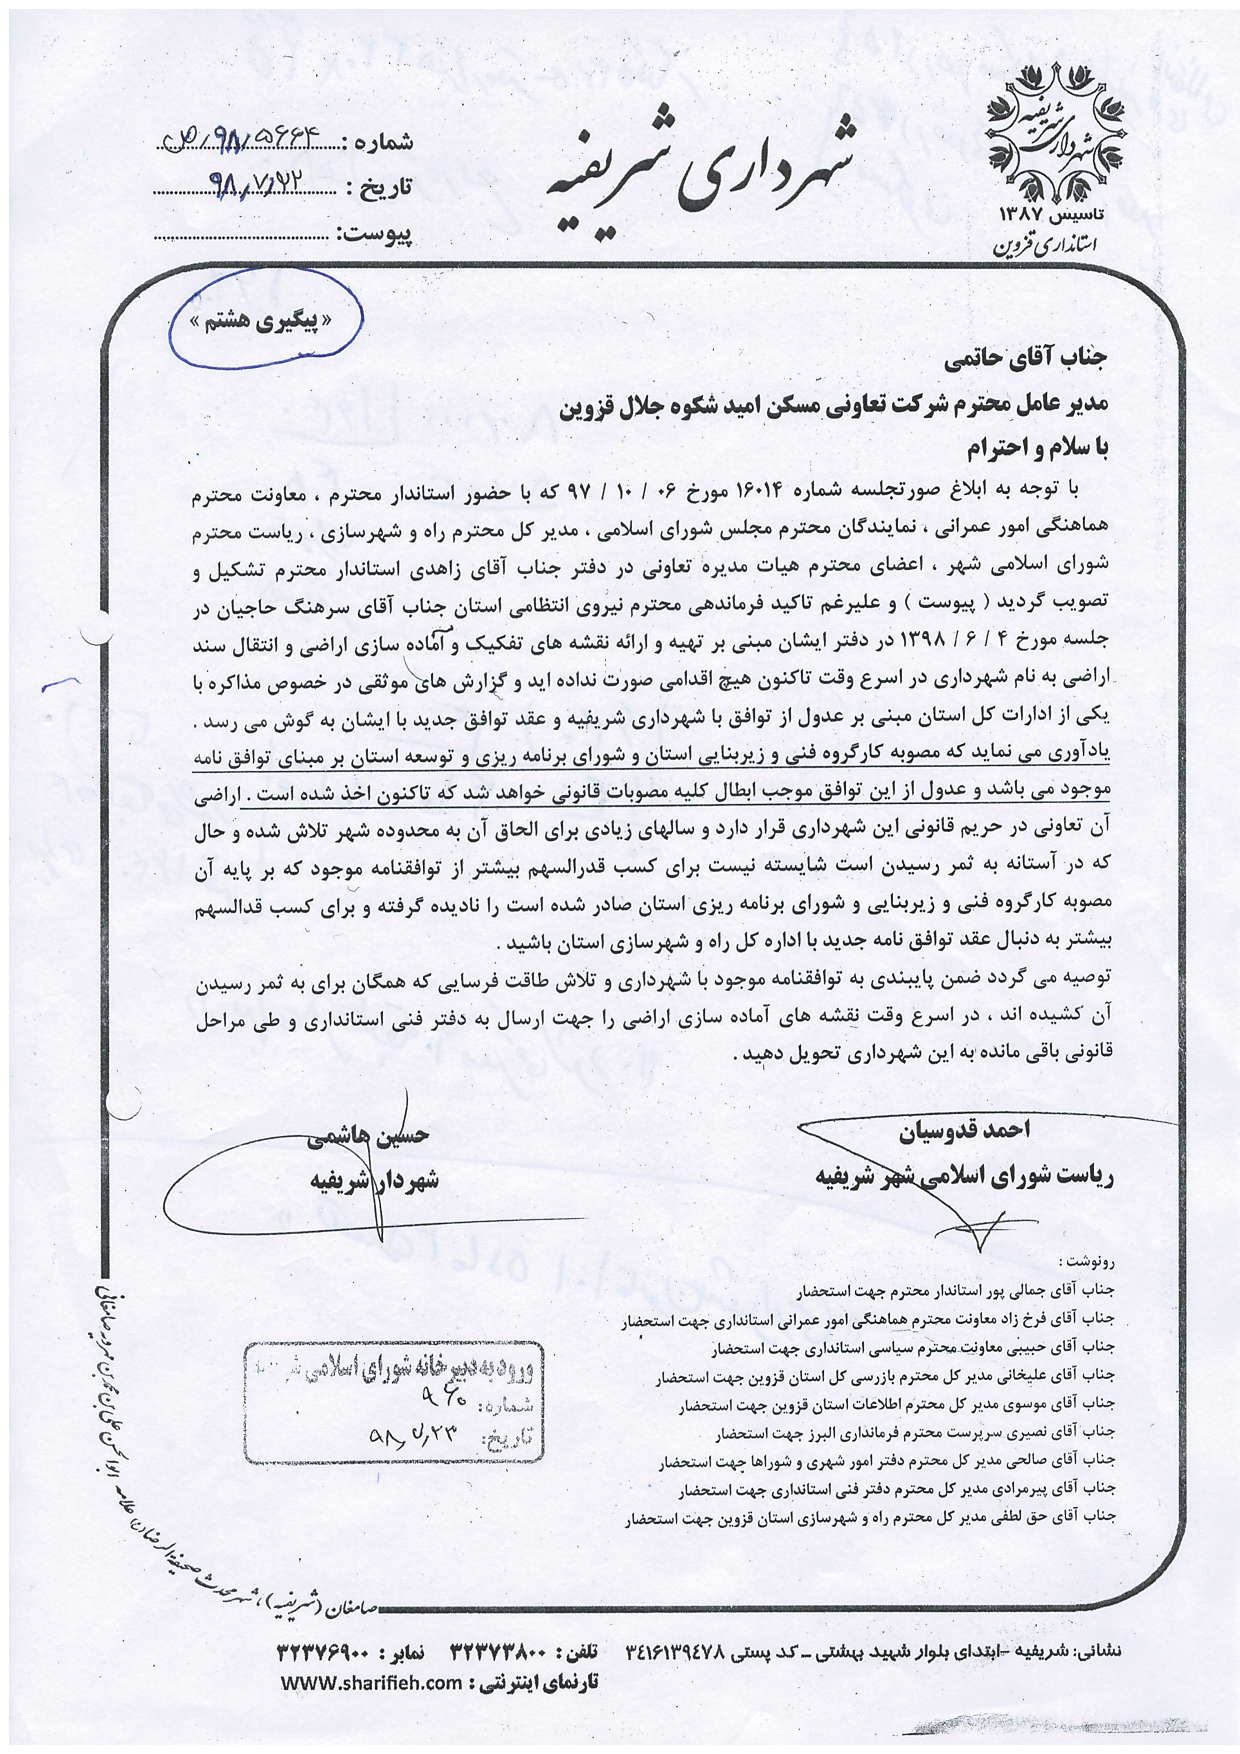 شهرداری شریفیه
تاسیس ۱۳۸۷
استانداری قزوین
شهرداری شریفیه
شماره : ۵۶۶۴/۹۸/ص
تاریخ : ۹۸/۷/۲۲
پیوست:
« پیگیری هشتم »
جناب آقای حاتمی
مدیر عامل محترم شرکت تعاونی مسکن امید شکوه جلال قزوین
با سلام و احترام
با توجه به ابلاغ صورتجلسه شماره ۱۶۰۱۴ مورخ ۰۶ / ۱۰ / ۹۷ که با حضور استاندار محترم ، معاونت محترم
هماهنگی امور عمرانی ، نمایندگان محترم مجلس شورای اسلامی ، مدیر کل محترم راه و شهرسازی ، ریاست محترم
شورای اسلامی شهر ، اعضای محترم هیات مدیره تعاونی در دفتر جناب آقای زاهدی استاندار محترم تشکیل و
تصویب گردید ( پیوست ) و علیرغم تاکید فرماندهی محترم نیروی انتظامی استان جناب آقای سرهنگ حاجیان در
جلسه مورخ ۴ / ۶ / ۱۳۹۸ در دفتر ایشان مبنی بر تهیه و ارائه نقشه های تفکیک و آماده سازی اراضی و انتقال سند
اراضی به نام شهرداری در اسرع وقت تاکنون هیچ اقدامی صورت نداده اید و گزارش های موثقی در خصوص مذاکره با
یکی از ادارات کل استان مبنی بر عدول از توافق با شهرداری شریفیه و عقد توافق جدید با ایشان به گوش می رسد .
یادآوری می نماید که مصوبه کارگروه فنی و زیربنایی استان و شورای برنامه ریزی و توسعه استان بر مبنای توافق نامه
موجود می باشد و عدول از این توافق موجب ابطال کلیه مصوبات قانونی خواهد شد که تاکنون اخذ شده است . اراضی
آن تعاونی در حریم قانونی این شهرداری قرار دارد و سالهای زیادی برای الحاق آن به محدوده شهر تلاش شده و حال
که در آستانه به ثمر رسیدن است شایسته نیست برای کسب قدرالسهم بیشتر از توافقنامه موجود که بر پایه آن
مصوبه کارگروه فنی و زیربنایی و شورای برنامه ریزی استان صادر شده است را نادیده گرفته و برای کسب قدالسهم
بیشتر به دنبال عقد توافق نامه جدید با اداره کل راه و شهرسازی استان باشید .
توصیه می گردد ضمن پایبندی به توافقنامه موجود با شهرداری و تلاش طاقت فرسایی که همگان برای به ثمر رسیدن
آن کشیده اند ، در اسرع وقت نقشه های آماده سازی اراضی را جهت ارسال به دفتر فنی استانداری و طی مراحل
قانونی باقی مانده به این شهرداری تحویل دهید .
احمد قدوسیان
ریاست شورای اسلامی شهر شریفیه
حسین هاشمی
شهردار شریفیه
رونوشت :
جناب آقای جمالی پور استاندار محترم جهت استحضار
جناب آقای فرخ زاد معاونت محترم هماهنگی امور عمرانی استانداری جهت استحضار
جناب آقای حبیبی معاونت محترم سیاسی استانداری جهت استحضار
جناب آقای علیخانی مدیر کل محترم بازرسی کل استان قزوین جهت استحضار
جناب آقای موسوی مدیر کل محترم اطلاعات استان قزوین جهت استحضار
جناب آقای نصیری سرپرست محترم فرمانداری البرز جهت استحضار
جناب آقای صالحی مدیر کل محترم دفتر امور شهری و شوراها جهت استحضار
جناب آقای پیرمرادی مدیر کل محترم دفتر فنی استانداری جهت استحضار
جناب آقای حق لطفی مدیر کل محترم راه و شهرسازی استان قزوین جهت استحضار
ورود به دبیرخانه شورای اسلامی
شماره:
تاریخ: ۹۸/۷/۲۳
صامغان (شریفیه)، شهر محدث صحیفة الرضا(ع) علامه ابوالحسن علی بن محمد بن مهرویه صامغانی
نشانی: شریفیه -ابتدای بلوار شهید بهشتی – کد پستی ۳۴۱۶۱۳۹۴۷۸ تلفن : ۳۲۳۷۳۸۰۰ نمابر : ۳۲۳۷۶۹۰۰
تارنمای اینترنتی : www.sharifieh.com